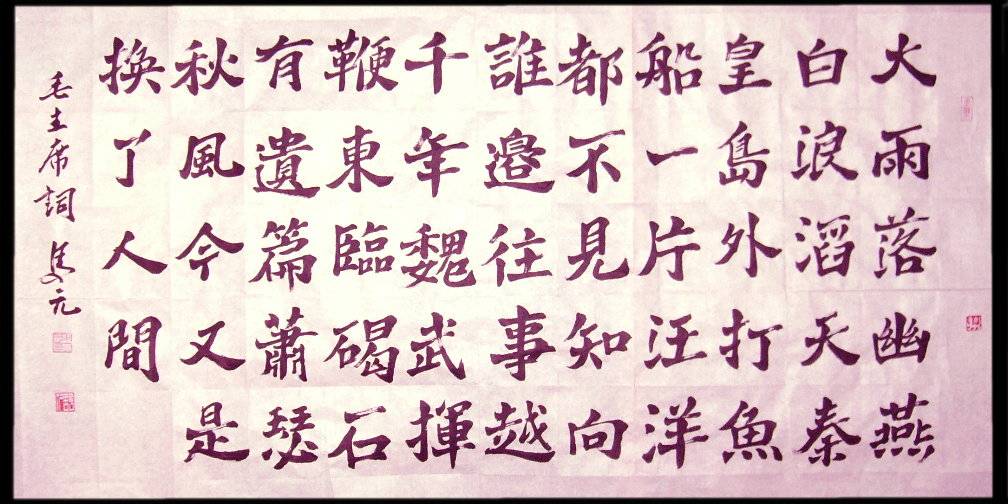 大雨落幽燕
白浪滔天秦
皇島外打魚
船一片汪洋
都不見知向
誰邊往事越
千年魏武揮
鞭東臨碣石
有遺篇蕭瑟
秋風今又是
換了人間
毛主席詞